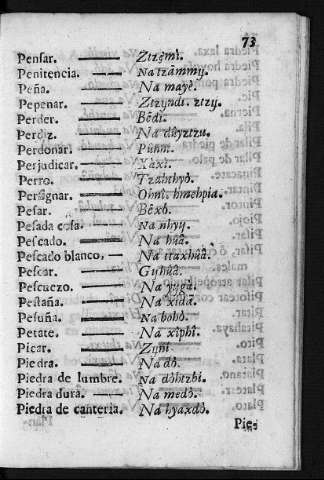 73
Pensar. Ztzẹmì.
Penitencia. Na tzāmmy.
Peña. Na mayè.
Pepenar. Ztzyndi. ztzy.
Perder. Bèdi.
Perdiz. Na dûyztzu.
Perdonar. Pùnni.
Perjudicar. Yàxi.
Perro. Tzàhthyò.
Persignar.
Pesar. Bèxò.
Pesada cosa. Na nhyų.
Pescado. Na hûâ.
Pescado blanco, Na ttaxhûâ.
Pescar. Gyhûâ.
Pescuezo. Na yụgâ.
Pestaña. Na xìdà.
Pesuña. Na bohò.
Petate. Na xîphî.
Picar. Zyni.
Piedra. Na dò.
Piedra de lumbre. Na dòhtzbi.
Piedra dura. Na medò.
Piedra de canteria. Na hyaxdò.
Pie-